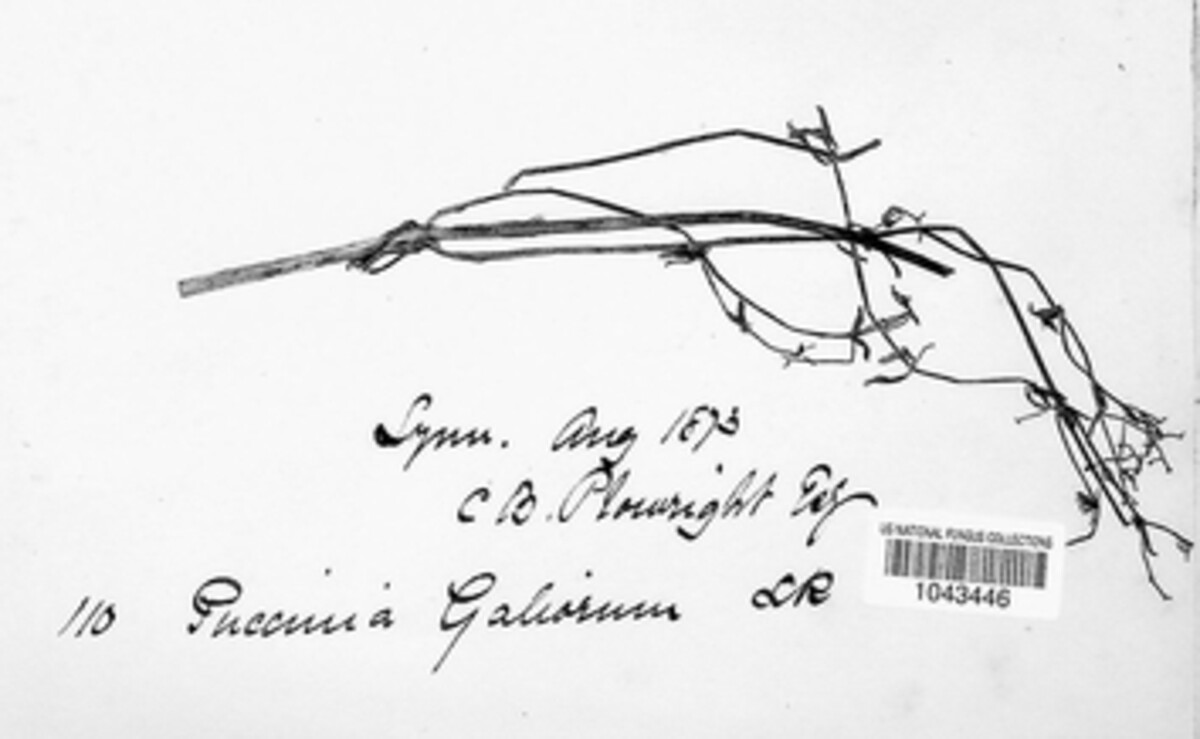 Lynn. Aug 1873
C B. Plowright Esq
US NATIONAL FUNGUS COLLECTIONS
1043446
110 Puccinia Galiorum LK